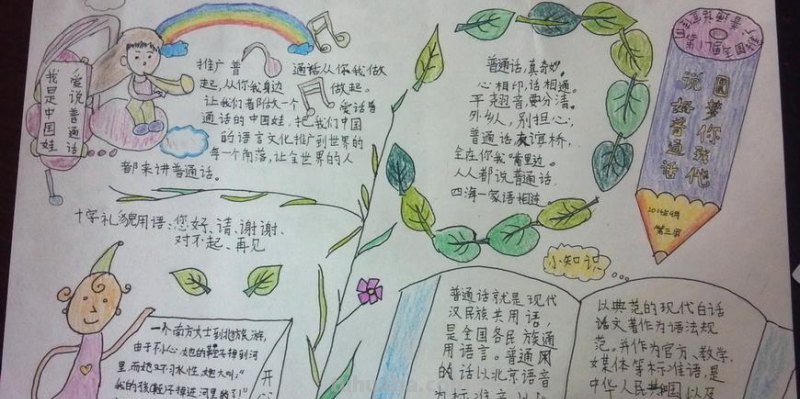 爱说普通话
我是中国娃
推广普通话从你我做
起,从你我身边做起。
让我们者都做一个爱说普
通话的中国娃,把我们中国
的语言文化推广到世界的
每一个角落,让全世界的人
都来讲普通话。
十字礼貌用语:您好、请、谢谢、
对不起、再见
普通话,真奇妙。
心相印,话相通。
平翘音,要分清。
外乡人,别担心,
普通话,友谊桥,
全在你我嘴里边。
人人都说普通话
四海一家语相连
圆梦你我代
说好普通话
2014年9月
第三周
小知识
一个南方女士到北方旅游,
由于不小心,她的鞋子掉到河
里,而她又不习水性,她大叫:“
我的孩(鞋)子掉进河里的了!”
开心
普通话就是现代
汉民族共用语,
是全国各民族通
用语言。普通
的话以北京语音
为标准音,以北
以典范的现代白话
话文著作为语法规
范。并作为官方、教学、
媒体等标准语,是
中华人民共和国以及